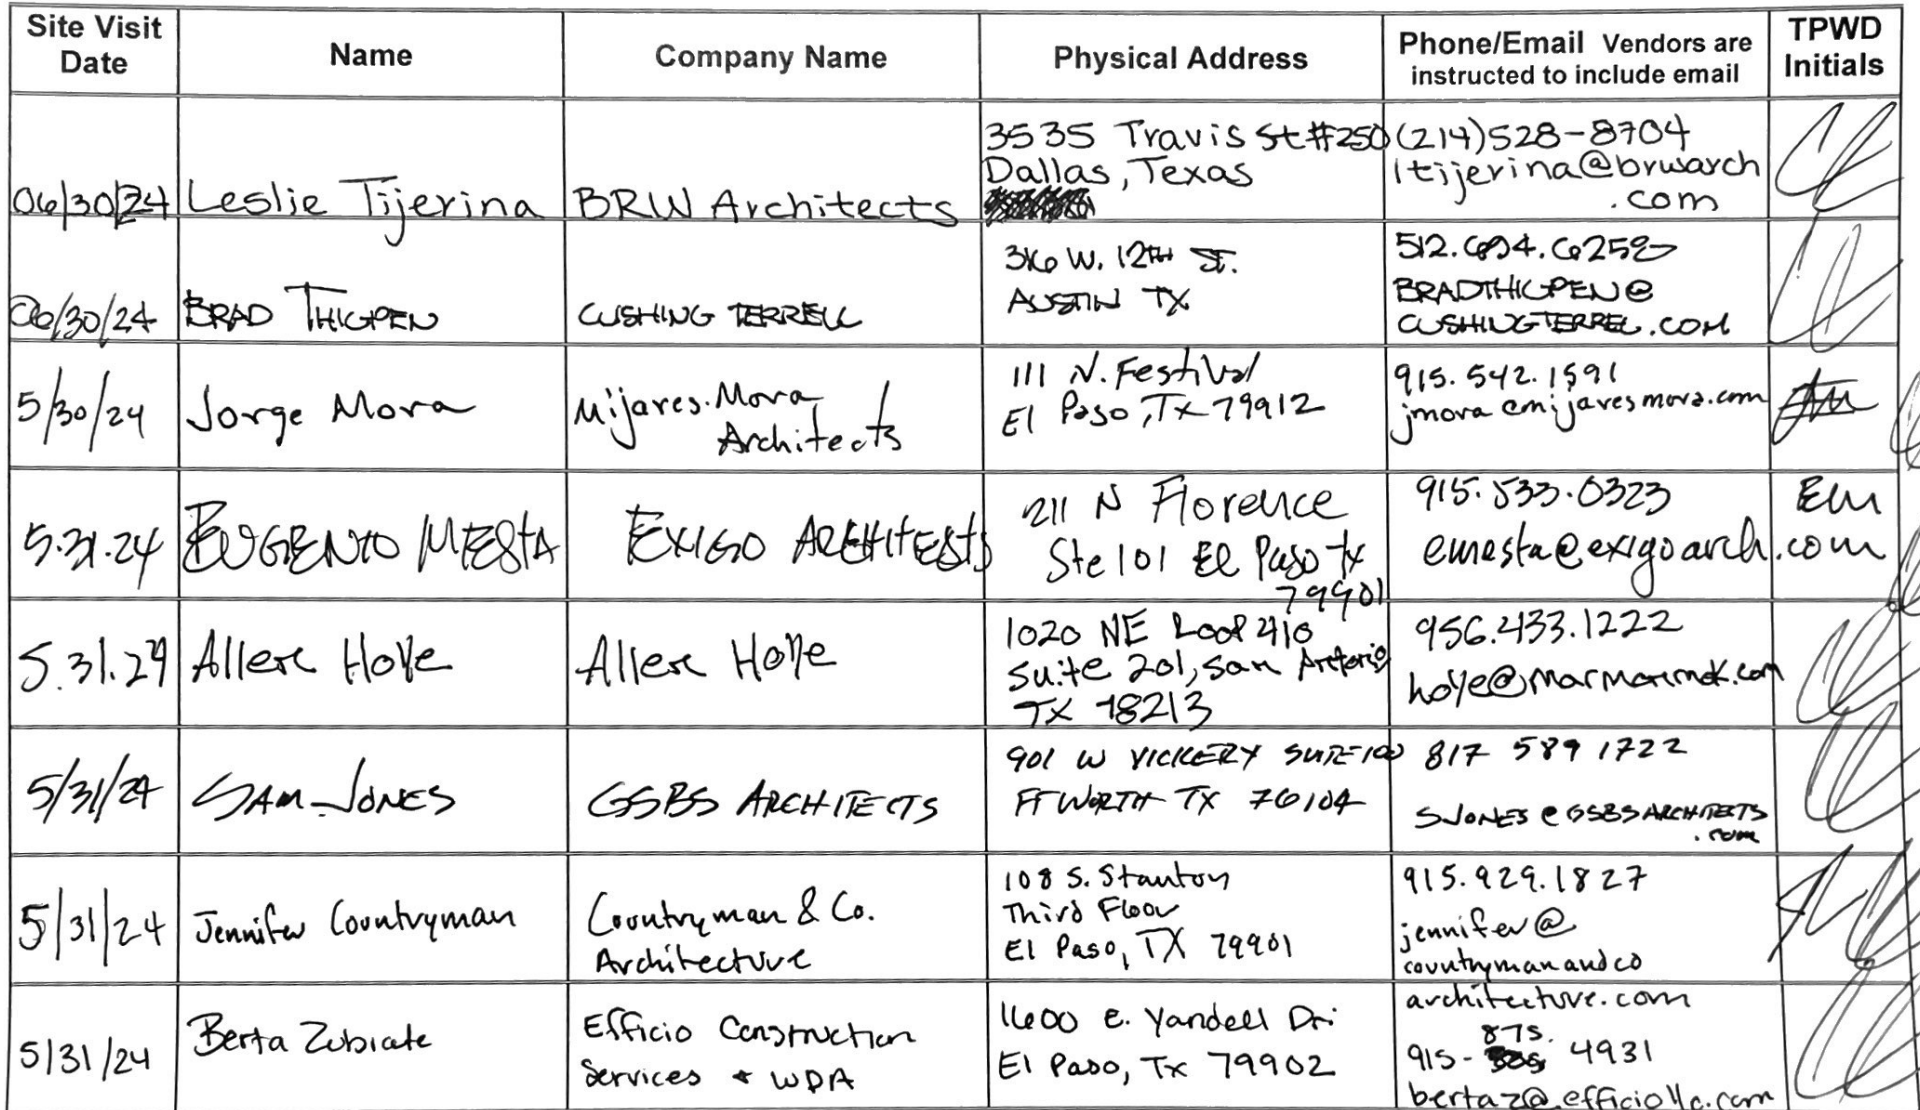 Site Visit Date
Name
Company Name
Physical Address
Phone/Email Vendors are instructed to include email
TPWD Initials
06/30/24
Leslie Tijerina
BRW Architects
3535 Travis St #250
Dallas, Texas
(214)528-8704
ltijerina@brwarch
.com
06/30/24
BRAD THIGPEN
CUSHING TERRELL
316 W. 12TH ST.
AUSTIN TX
BRADTHIGPEN@
CUSHINGTERREL.COM
5/30/24
Jorge Mora
Mijares.Mora
Architects
111 N. Festival
El Paso, Tx 79912
915.542.1591
jmora@mijaresmora.com
5.31.24
EUGENIO MESTA
EXIGO ARCHITECTS
211 N Florence
Ste 101 El Paso tx
79901
915.533.0323
emesta@exigoarch.com
EM
5.31.24
Allen Hoye
Allen Hoye
1020 NE Loop 410
Suite 201, San Antonio
TX 78213
956.433.1222
hoye@marmonmok.com
5/31/24
SAM JONES
GSBS ARCHITECTS
901 W VICKERY SUITE 100
FT WORTH TX 76104
817 589 1722
SJONES@GSBSARCHITECTS
.com
5/31/24
Jennifer Countryman
Countryman & Co.
Architecture
108 S. Stanton
Third Floor
El Paso, TX 79901
915.929.1827
jennifer@
countrymanandco
architecture.com
5/31/24
Berta Zubiate
Efficio Construction
Services + WDA
1600 E. Yandell Dr.
El Paso, Tx 79902
875.
915- 4931
bertaz@efficiollc.com